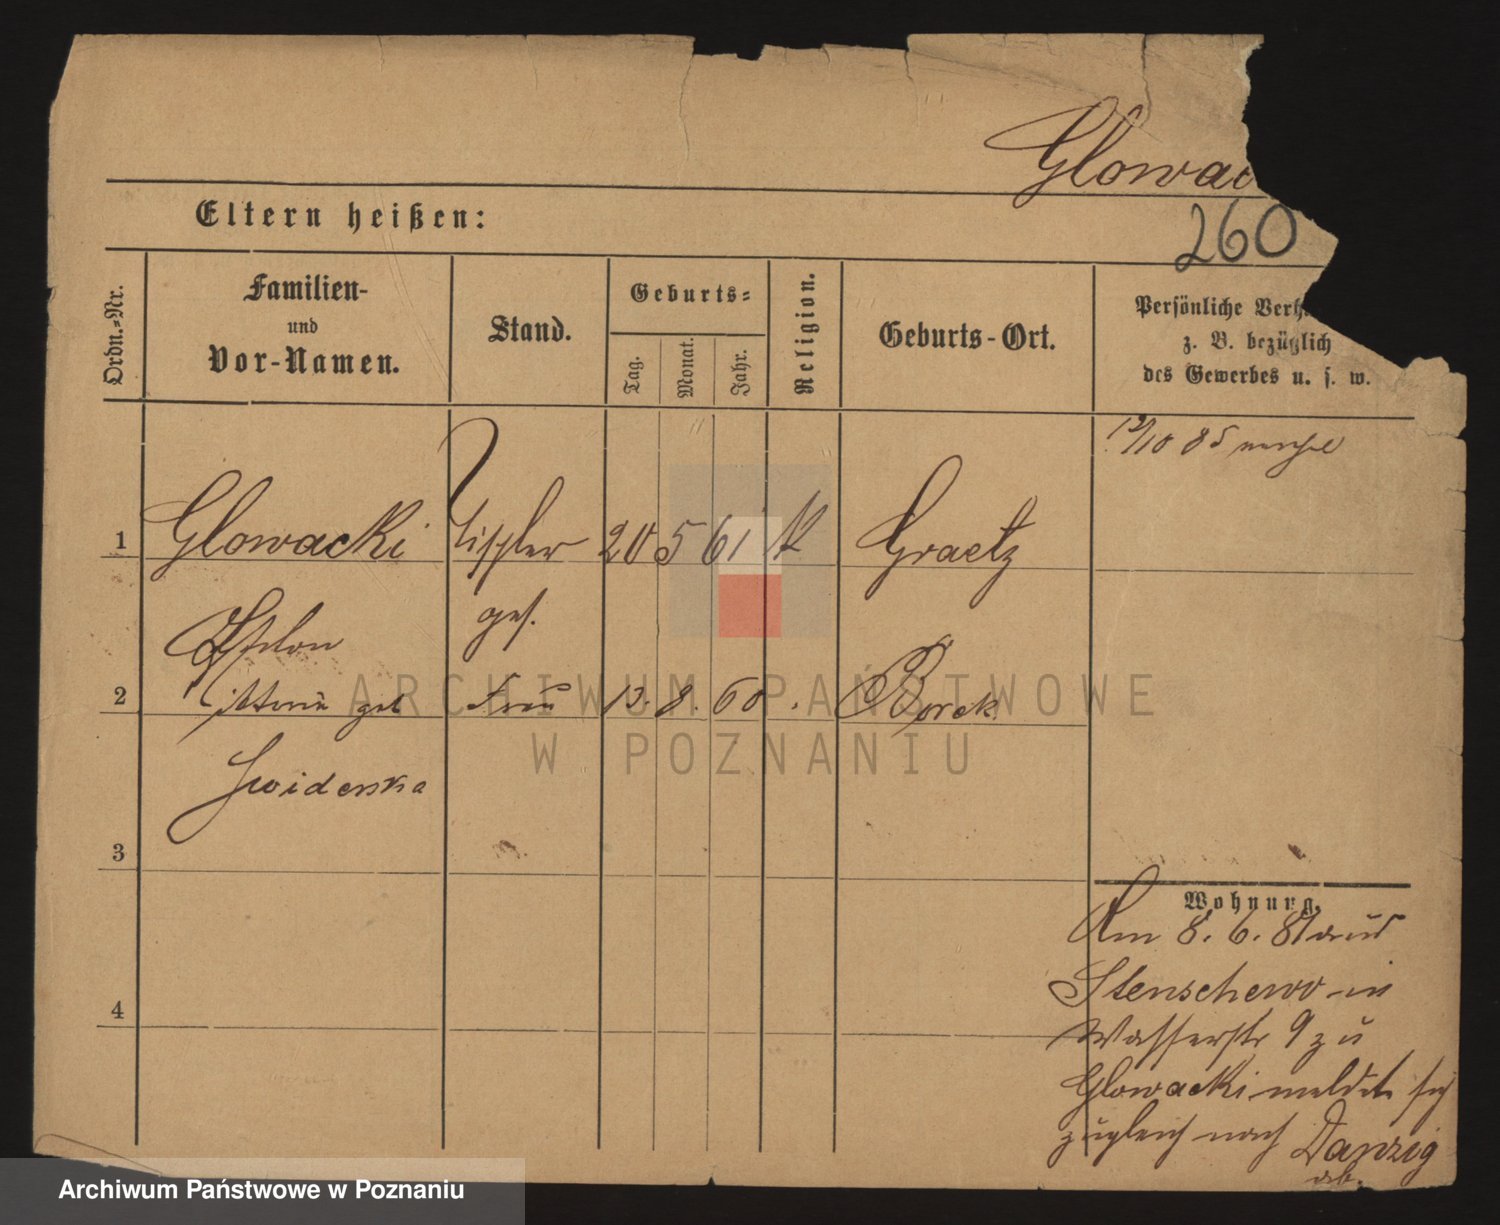 Glowac
260
Eltern heißen:
Ordn.-Nr.
Familien-
und
Vor-Namen.
Stand.
Geburts-
Tag.
Monat.
Jahr.
Religion.
Geburts-Ort.
Persönliche Verh
z. B. bezüglich
des Gewerbes u. s. w.
12/10 85
1 Glowacki Tischler 20 5 61 k Graetz
ges.
2 geb Frau 13. 8. 60 Borek
Swiderska
3
4
Wohnung.
Am 8. 6. 81 aus
Stenschewo in
Wasserstr 9 zu
Glowacki meldet sich
zugleich nach Danzig
ab.
ARCHIWUM PAŃSTWOWE
W POZNANIU
Archiwum Państwowe w Poznaniu